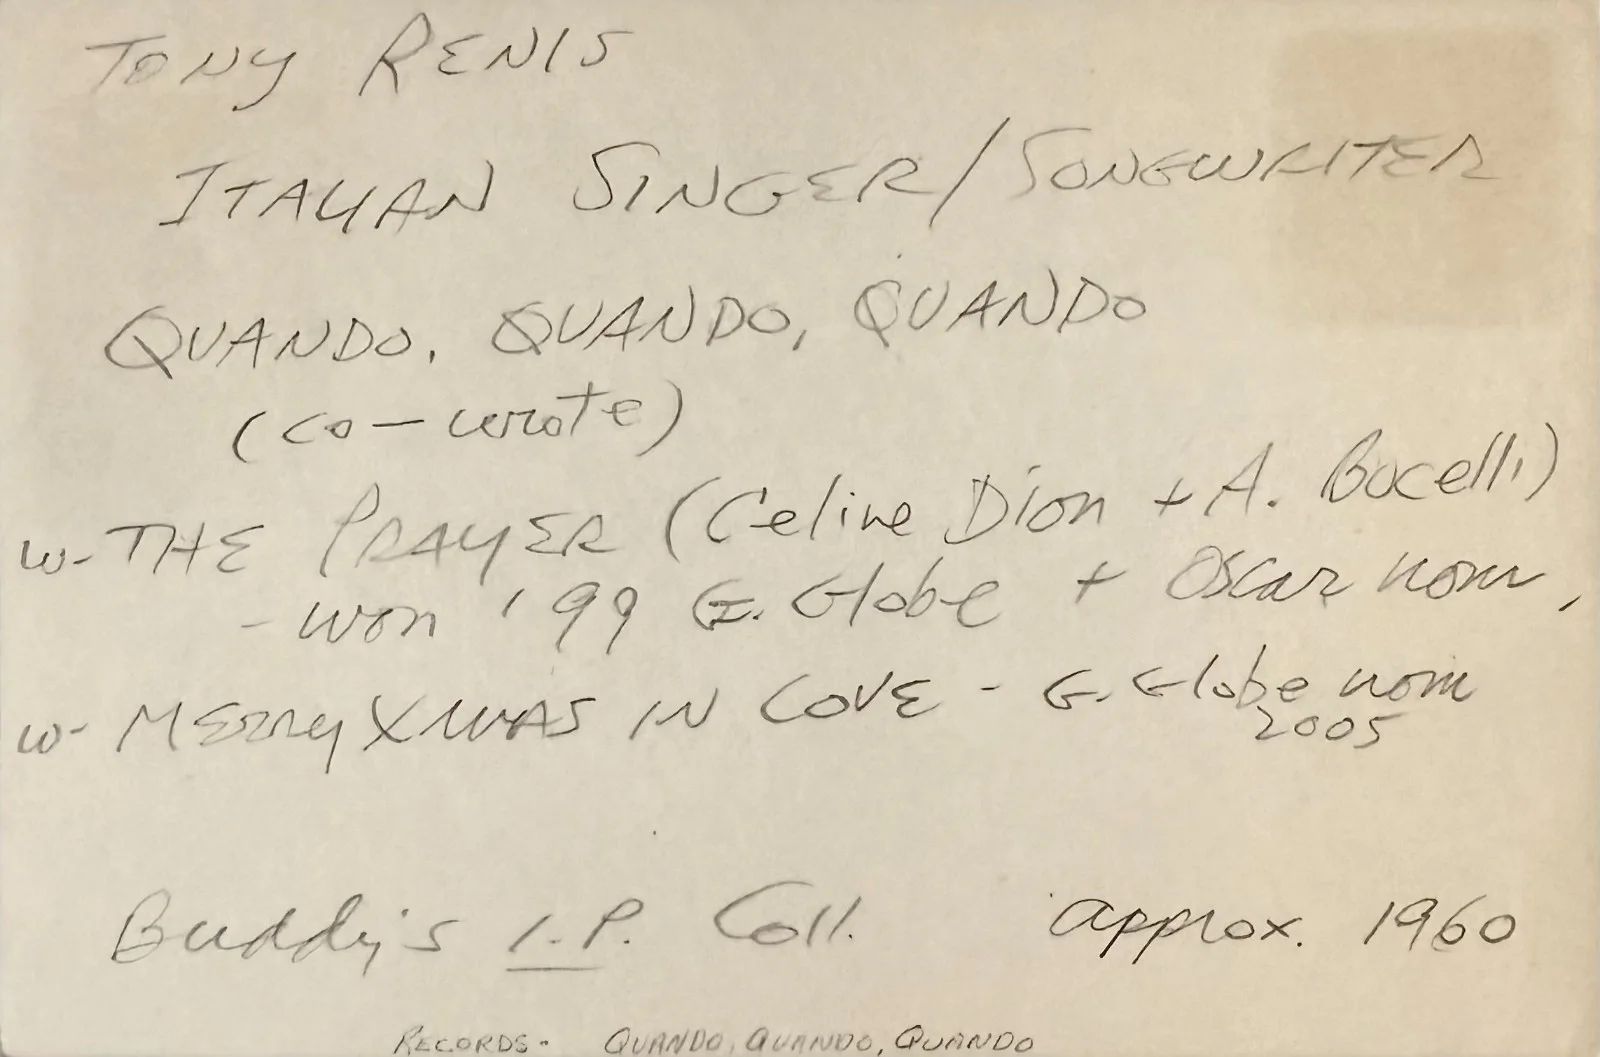 TONY RENIS
ITALIAN SINGER/SONGWRITER
QUANDO, QUANDO, QUANDO
(co-wrote)
w- THE PRAYER (Celine Dion + A. Bocelli)
- won '99 G. Globe + Oscar nom,
w- MERRY XMAS IN LOVE - G. Globe nom
2005
Buddy's I.P. Coll. approx. 1960
RECORDS- QUANDO, QUANDO, QUANDO